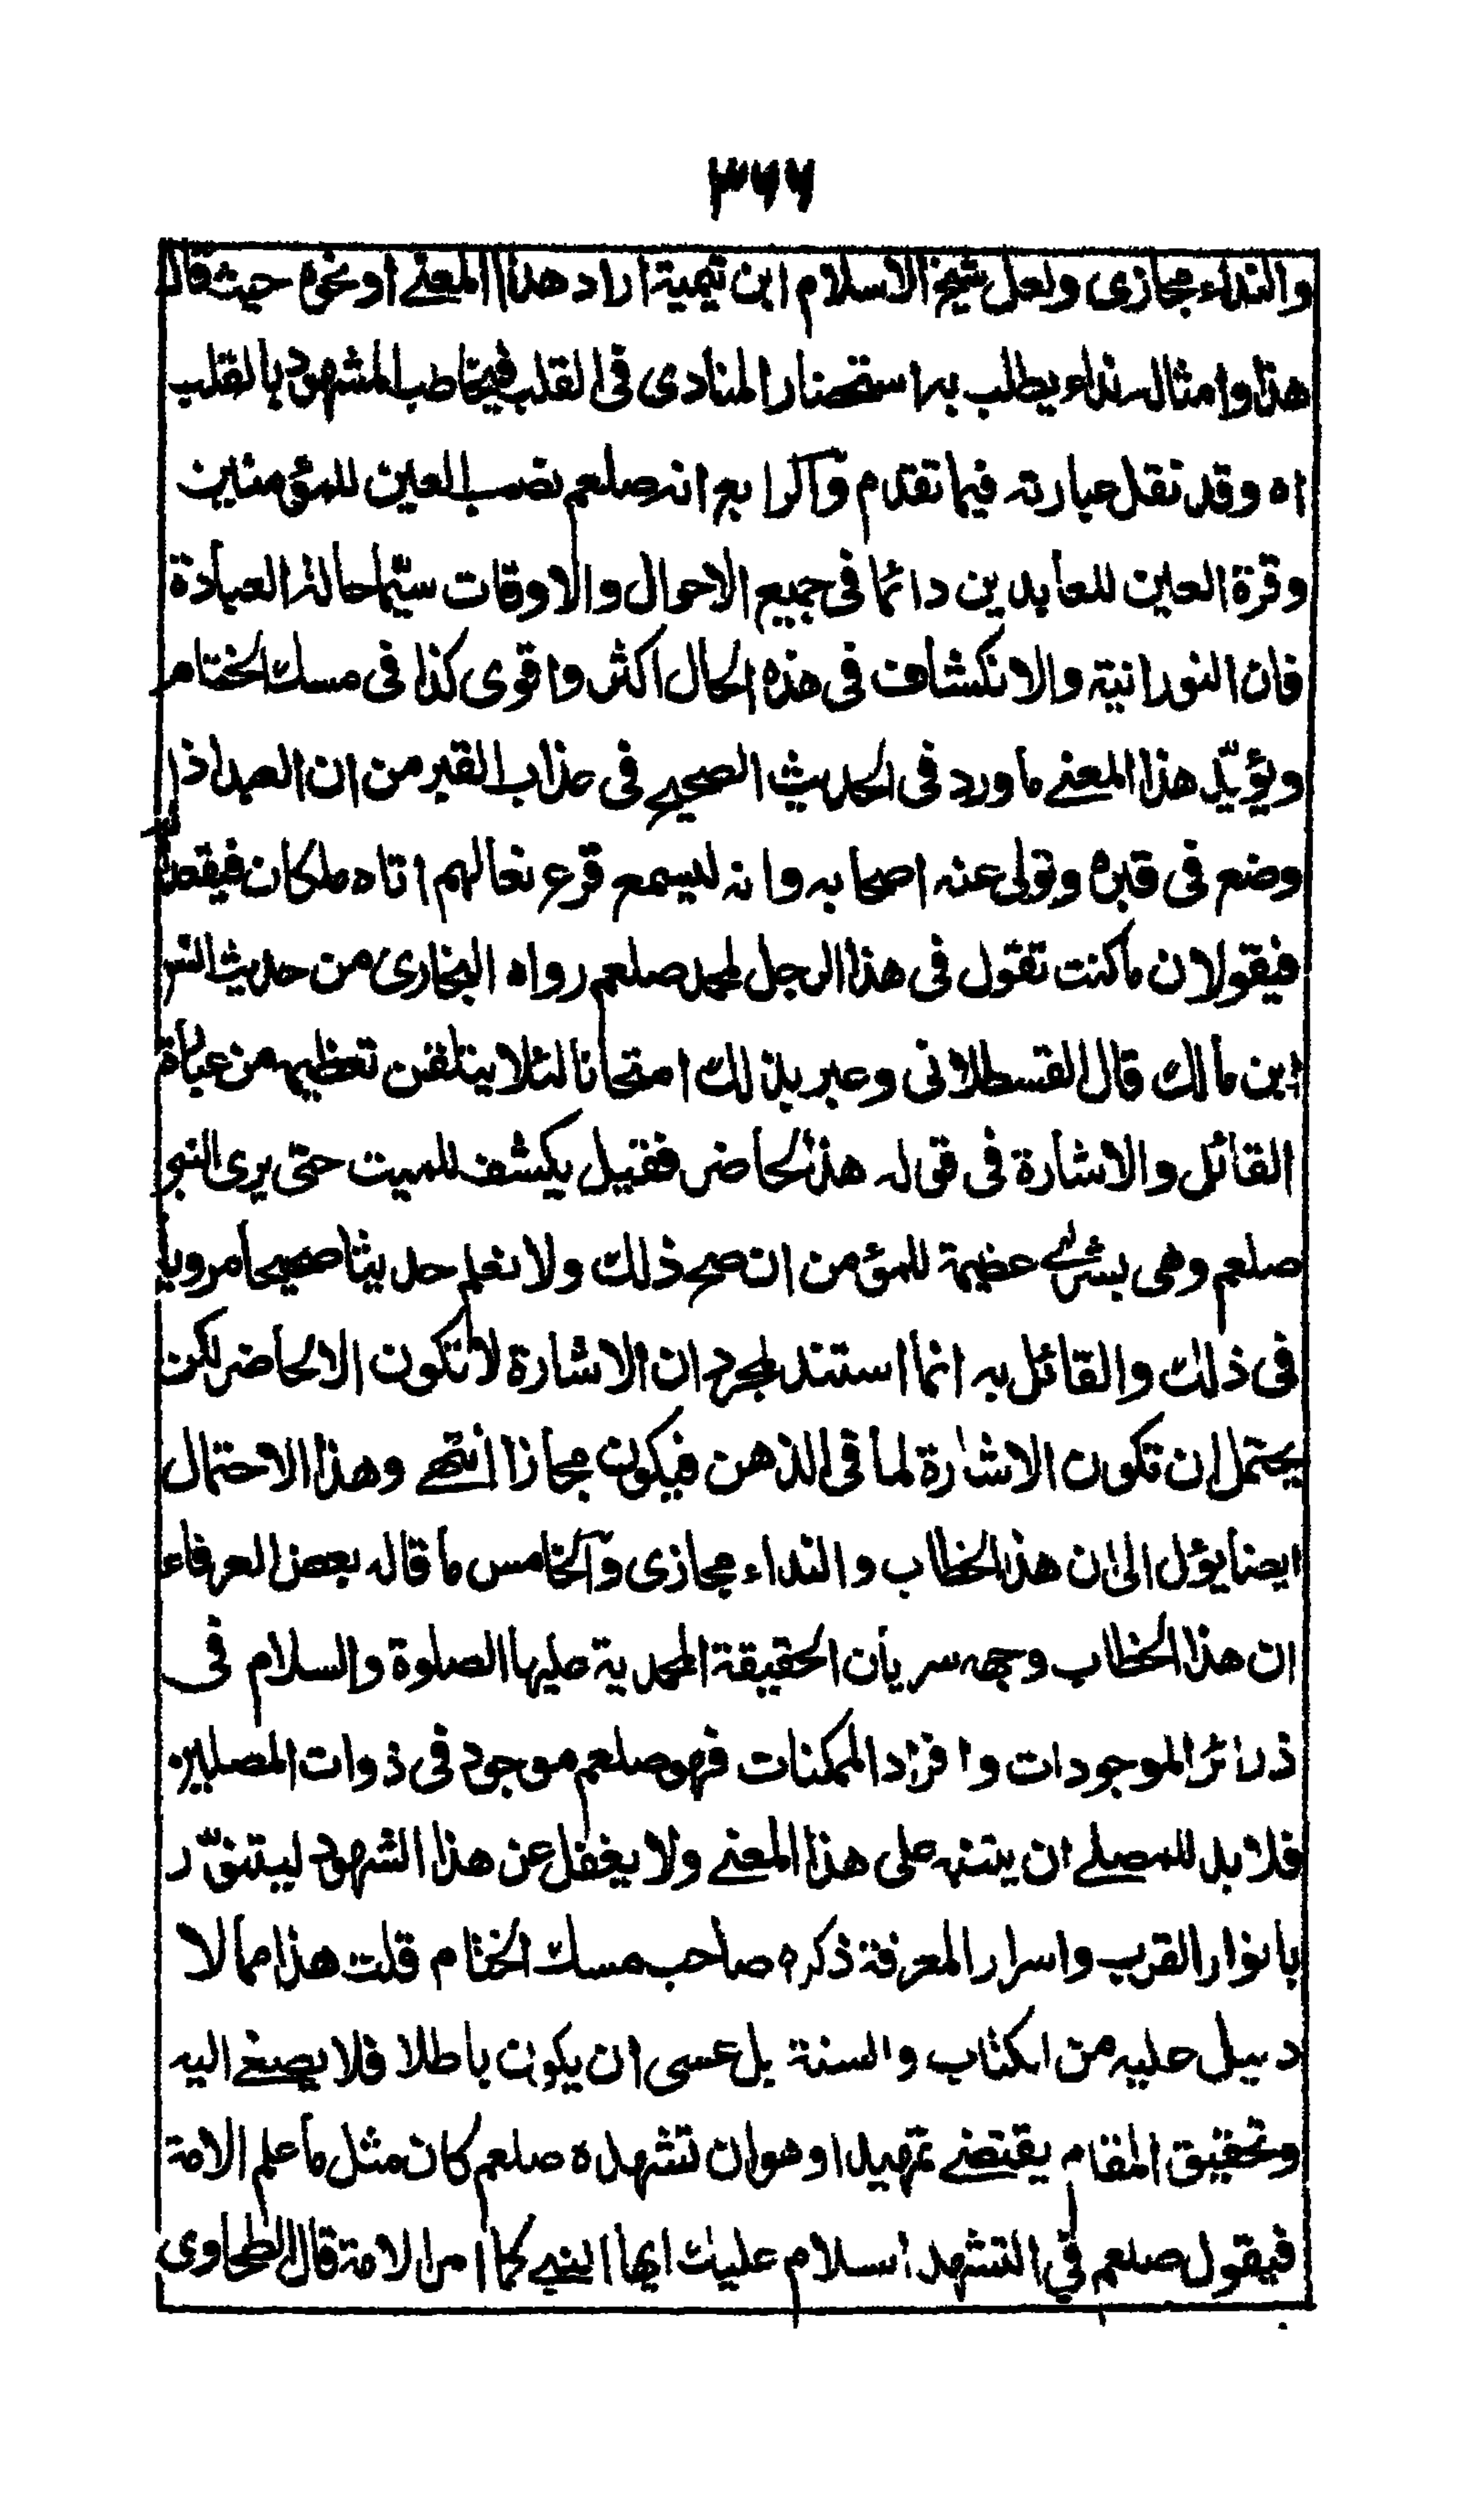 ٣٦٦
والنداء مجازى ولعل شيخ الاسلام ابن تيمية اراد هذا المعنے او نحوه حيث قال
هذا وامثاله نداء يطلب به استحضار المنادى فى القلب فيخاطب المشهود بالقلب
اه وقد نقل عبارته فيما تقدم والرابع انه صلعم نصب العين للمؤمنين
وقرة العين للعابدين دائما فى جميع الاحوال والاوقات سيّما حالة العبادة
فان النورانية والانكشاف فى هذه الحال اكثر واقوى كذا فى مسك الختام
ويؤيّد هذا المعنے ما ورد فى الحديث الصحيح فى عذاب القبر من ان العبد اذا
وضع فى قبره وتولى عنه اصحابه وانه ليسمع قرع نعالهم اتاه ملكان فيقعدانه
فيقولان ما كنت تقول فى هذا الرجل لمحمد صلعم رواه البخارى من حديث انس
ابن مالك قال القسطلانى وعبر بذلك امتحانا لئلا يتلقن تعظيمه من عبارة
القائل والاشارة فى قوله هذا لحاضر فقيل يكشف للميت حتى يرى النبى
صلعم وهى بشرىٰ عظيمة للمؤمن ان صح ذلك ولا نعلم حديثا صحيحا مرويا
فى ذلك والقائل به انما استند لمجرد ان الاشارة لا تكون الا لحاضر لكن
يحتمل ان تكون الاشارة لما فى الذهن فيكون مجازا انتهے وهذا الاحتمال
ايضا يؤل الى ان هذا الخطاب والنداء مجازى والخامس ما قاله بعض العرفاء
ان هذا الخطاب وجهه سريان الحقيقة المحمدية عليها الصلوة والسلام فى
ذرائر الموجودات وافراد الممكنات فهو صلعم موجود فى ذوات المصلين
فلا بد للمصلے ان يتنبه على هذا المعنے ولا يغفل عن هذا الشهود ليتنوّر
بانوار القرب واسرار المعرفة ذكره صاحب مسك الختام قلت هذا مما لا
دليل عليه من الكتاب والسنة بل عسى ان يكون باطلا فلا يصغے اليه
وتحقيق المقام يقتضے تمهيدا وهو ان تشهده صلعم كان مثل ما علم الامة
فيقول صلعم فى التشهد السلام عليك ايها النبے كما امر الامة قال الطحاوى